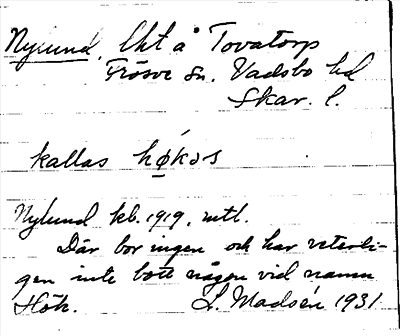 Nylund, lht å Tovatorp
Frösve sn. Vadsbo hd
Skar. l.
kallas hø̱kɔs
Nylund kb. 1919, mtl.
Där bor ingen och har veterli-
gen inte bott någon vid namn
Hök. L. Madsén 1931.